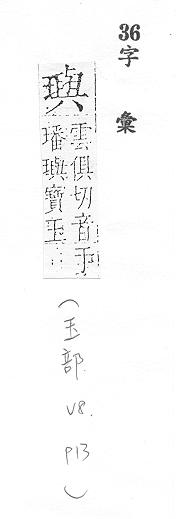 36字 彙
璵
雲俱切音于
璠璵寶玉⋯
(玉部 V8. P13)